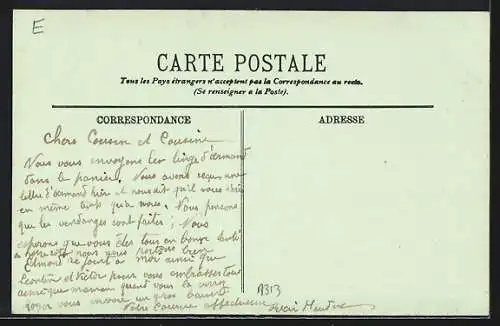 E
CARTE POSTALE
Tous les Pays étrangers n'acceptent pas la Correspondance au recto.
(Se renseigner a la Poste).
CORRESPONDANCE
ADRESSE
Chers Cousin et Cousine
Nous vous envoyons le linge d'
dans le panier. Nous avons reçu une
hier et nous dit qu'il vous
en même que nous. Nous pensons
que les vendanges sont faites; Nous
esporons que vous êtes tous en bonne
nous nous portons bien
se joint à moi ainsi que
et Victor pour vous embrasser tous
ainsi que maman quant vous la
vous envoie un gros
Votre Cousine affectueuse
A313